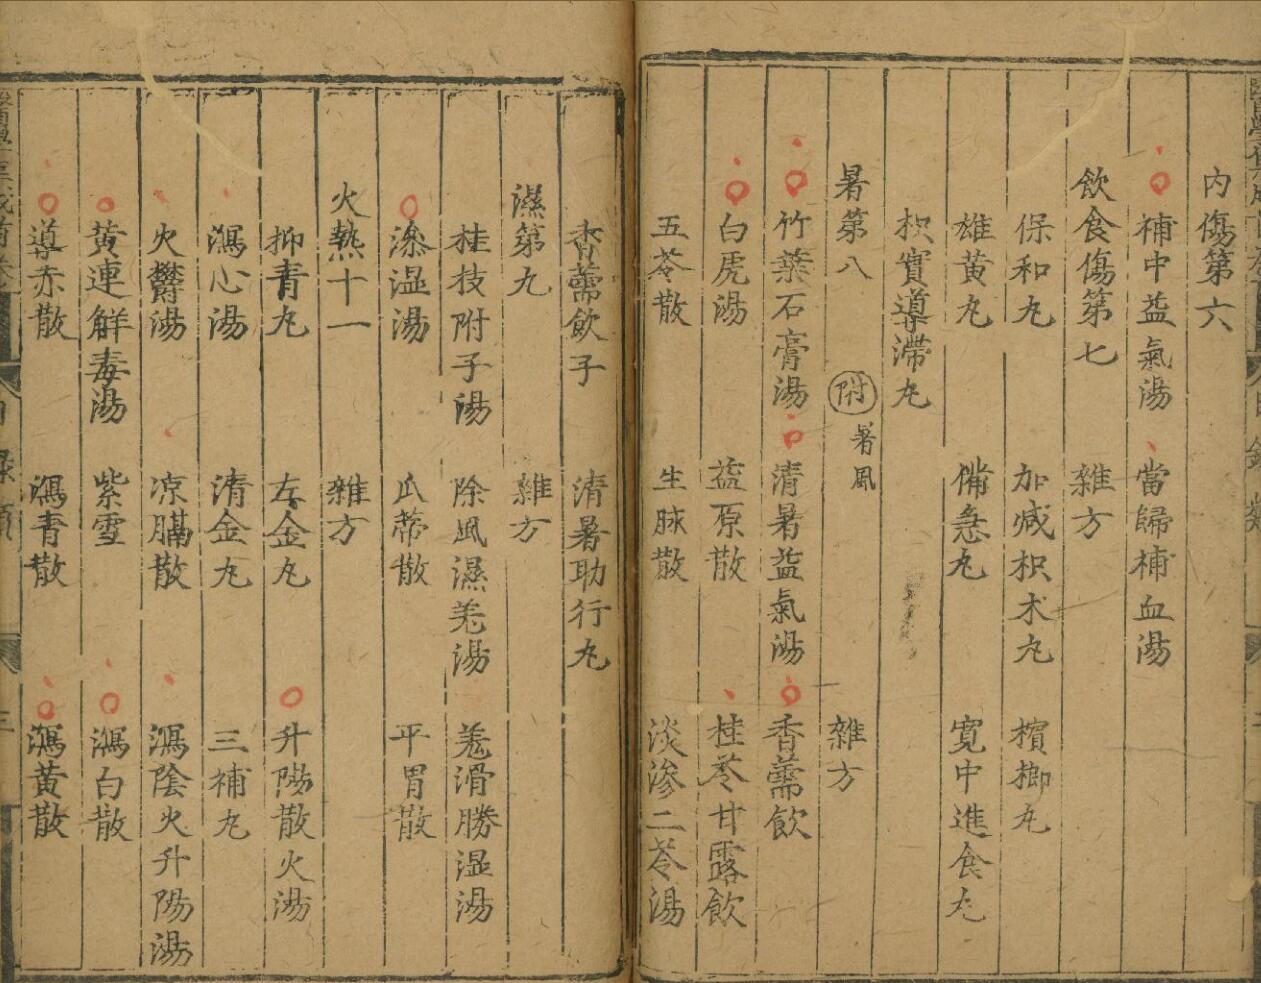 內傷第六
補中益氣湯 當歸補血湯
飲食傷第七 雜方
保和丸 加減枳术丸 檳榔丸
雄黄丸 備急丸 寬中進食丸
枳實導滯丸
暑第八 附 暑風 雜方
竹葉石膏湯 清暑益氣湯 香薷飲
白虎湯 益原散 桂苓甘露飲
五苓散 生脉散 淡滲二苓湯
香薷飲子 清暑助行丸
濕第九 雜方
桂枝附子湯 除風濕羌湯 羌滑勝湿湯
滲湿湯 瓜蒂散 平胃散
火熱十一 雜方
抑青丸 左金丸 升陽散火湯
瀉心湯 清金丸 三補丸
火鬱湯 凉膈散 瀉陰火升陽湯
黄連解毒湯 紫雪 瀉白散
導赤散 瀉青散 瀉黄散